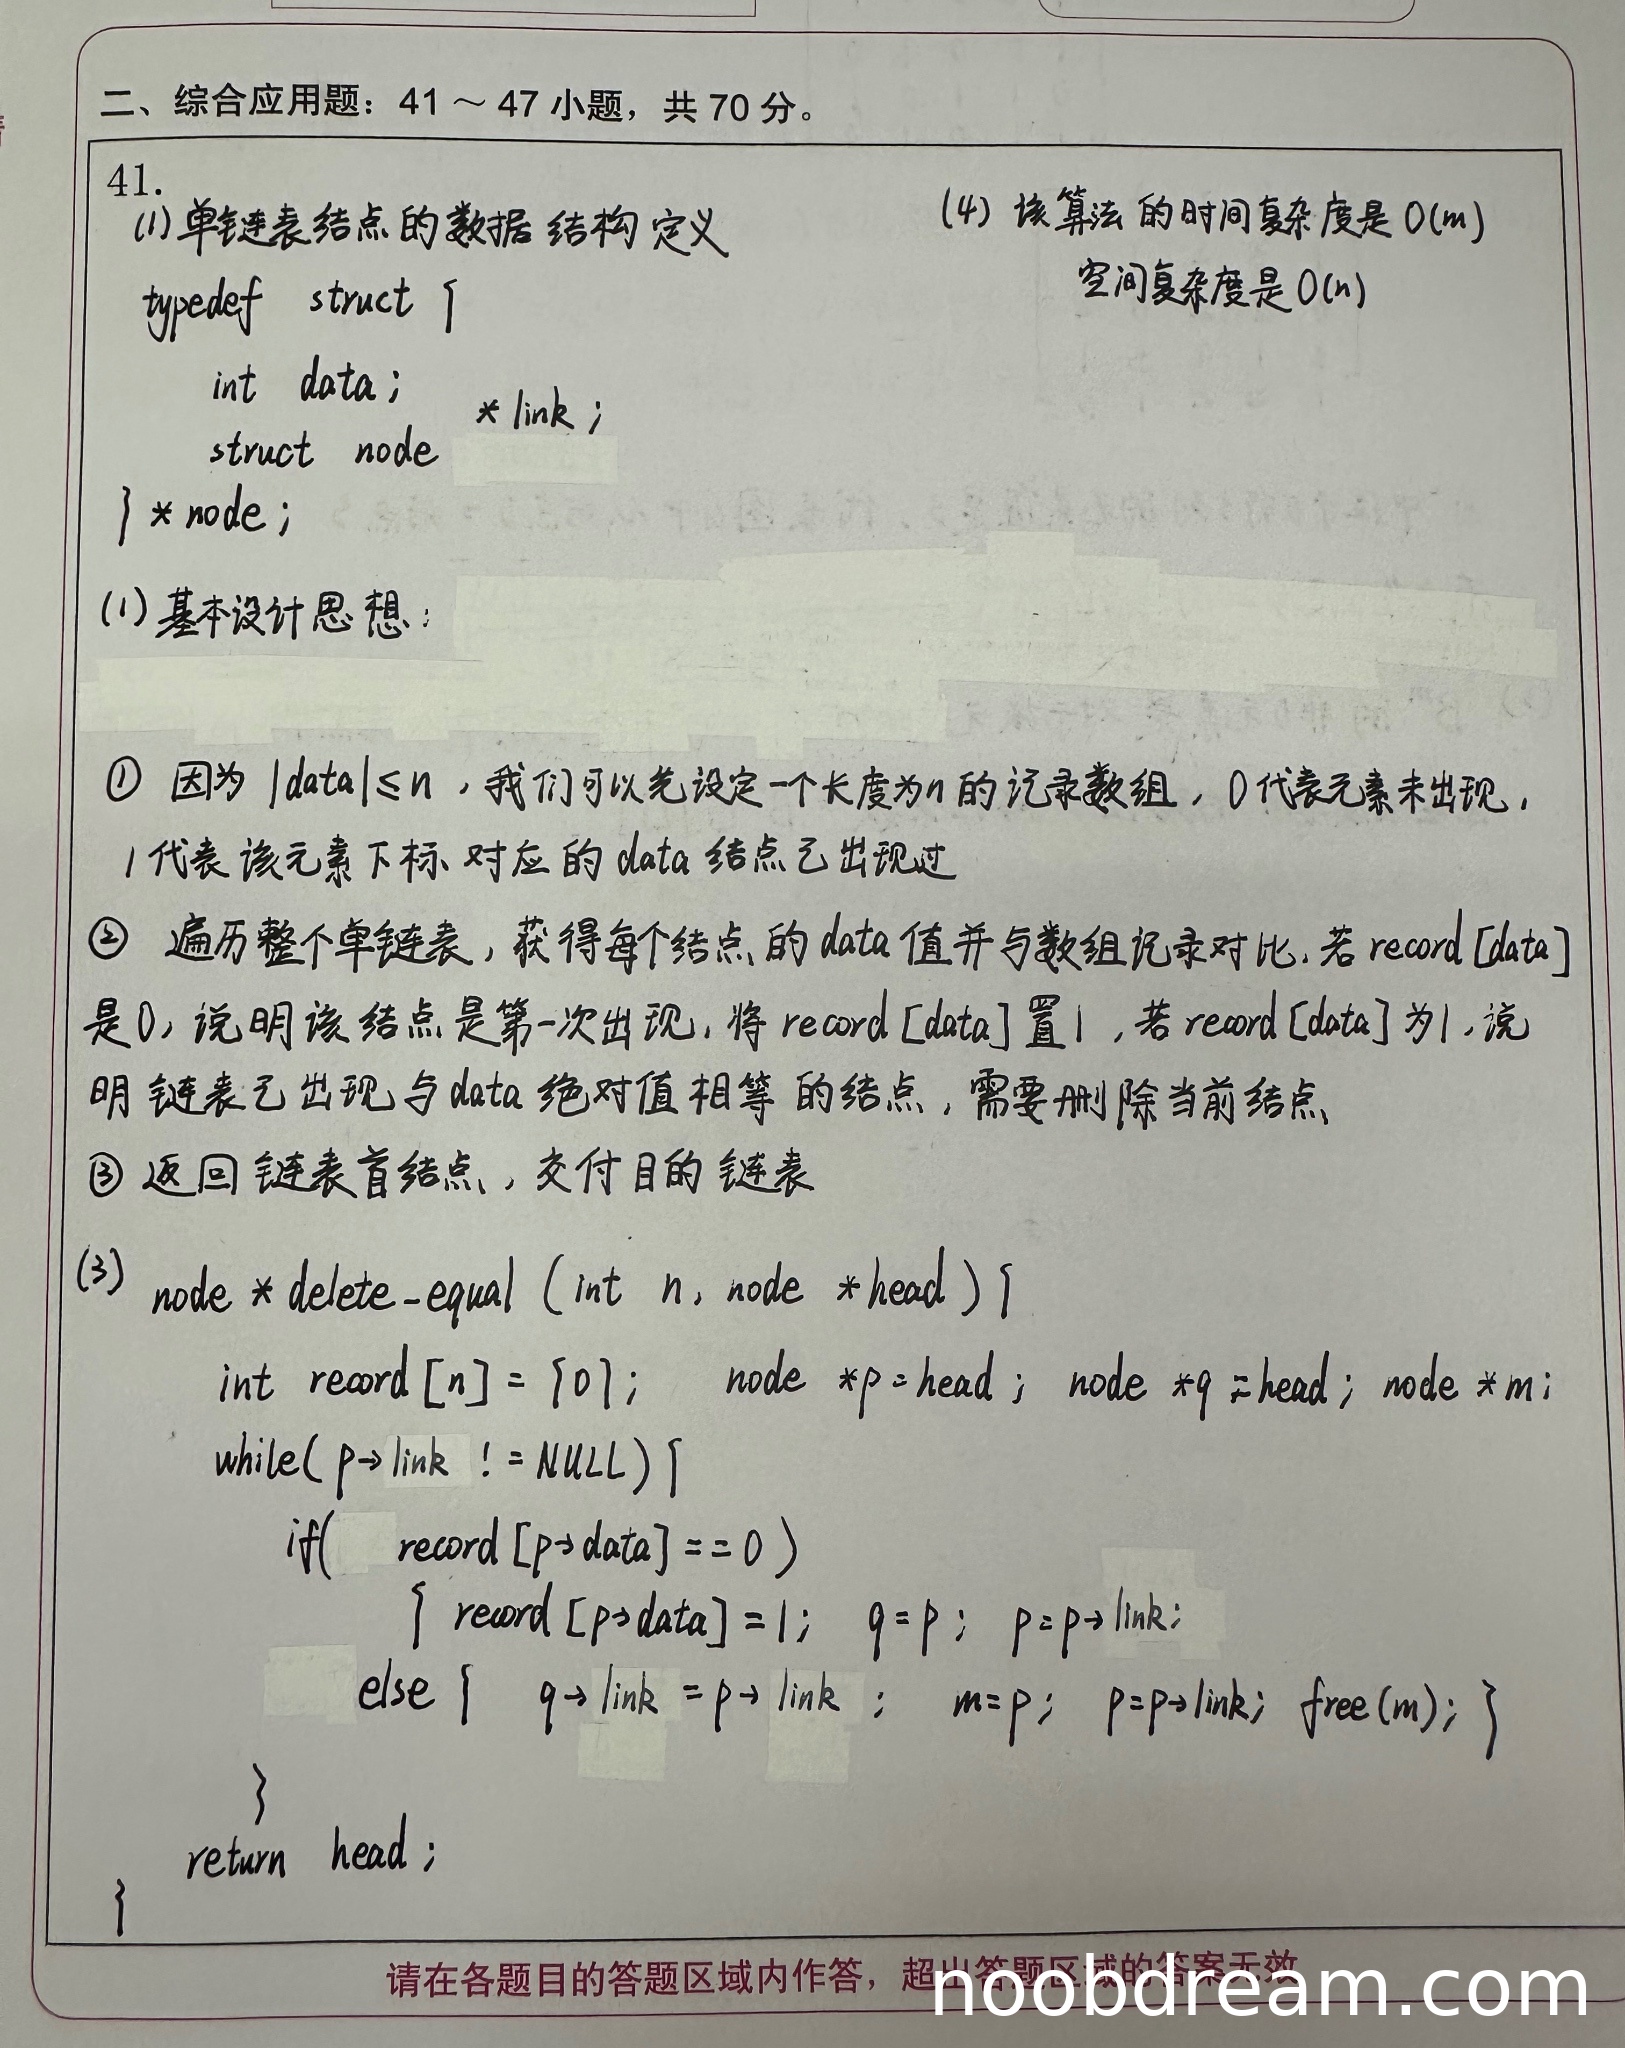 二、综合应用题：41 ～ 47 小题，共 70 分。
41.
(1) 单链表结点的数据结构定义
typedef struct {
int data;
struct node *link;
} *node;
(1) 基本设计思想：
① 因为 |data|≤n，我们可以先设定一个长度为n的记录数组，0代表元素未出现，
1代表该元素下标对应的data结点已出现过
② 遍历整个单链表，获得每个结点的data值并与数组记录对比，若record[data]
是0，说明该结点是第一次出现，将record[data]置1，若record[data]为1，说
明链表已出现与data绝对值相等的结点，需要删除当前结点
③ 返回链表首结点，交付目的链表
(3) node *delete_equal (int n, node *head) {
int record[n] = {0}; node *p=head; node *q=head; node *m;
while( p→link != NULL) {
if( record[p→data]==0 )
{ record[p→data]=1; q=p; p=p→link;
else { q→link = p→link ; m=p; p=p→link; free(m); }
}
return head;
}
(4) 该算法的时间复杂度是O(m)
空间复杂度是O(n)
请在各题目的答题区域内作答，超出答题区域的答案无效
noobdream.com